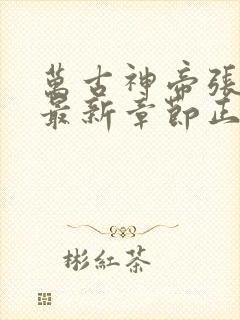 萬古神帝張
最新章節正
彬紅茶